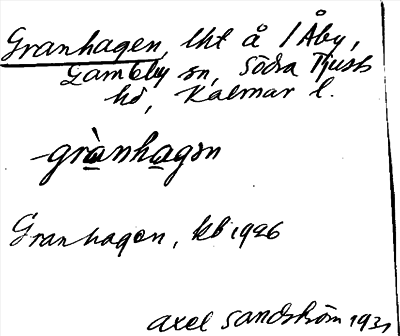 Granhagen, lht å 1 Åby,
Gamleby sn, Södra Tjusts
hd, Kalmar l.
-grànhagən
Granhagen, kb 1926
Axel Sandström 1931